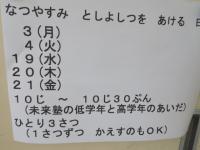 なつやすみ としよしつを あける 日
3(月)
4(火)
19(水)
20(木)
21(金)
10じ ~ 10じ30ぷん
(未来塾の低学年と高学年のあいだ)
ひとり3さつ
(1さつずつ かえすのもOK)